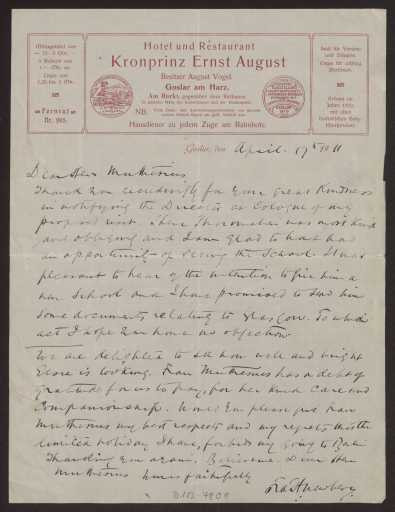 Hotel und Restaurant
Kronprinz Ernst August
Besitzer August Vogel
Goslar am Harz.
Am Markt, gegenüber dem Rathause.
NB.
Hausdiener zu jedem Zuge am Bahnhofe.
Fernruf
Nr. 905.
Goslar, den April 17th 1911
Dear Herr Muthesius
Thank you exceedingly for your great kindness
in notifying the Director at Cologne of my
proposed visit. Herr was most kind
and obliging and I am glad to have had
an opportunity of seeing the School. It was
pleasant to hear of the intention to give him a
new School and I have promised to send him
some documents relating to Glasgow. To which
act I hope you have no objection.
We are delighted to see how well and bright
is looking. Frau Muthesius has a debt of
gratitude for us to pay, for her kind care and
Companionship. Will you please give Frau
Muthesius my best respects and my regrets that the
limited holiday I have, forbids my going to Berlin
Thanking you again, Believe me, Dear Herr
Muthesius Yours faithfully
Fra H Newbery
D102-4909